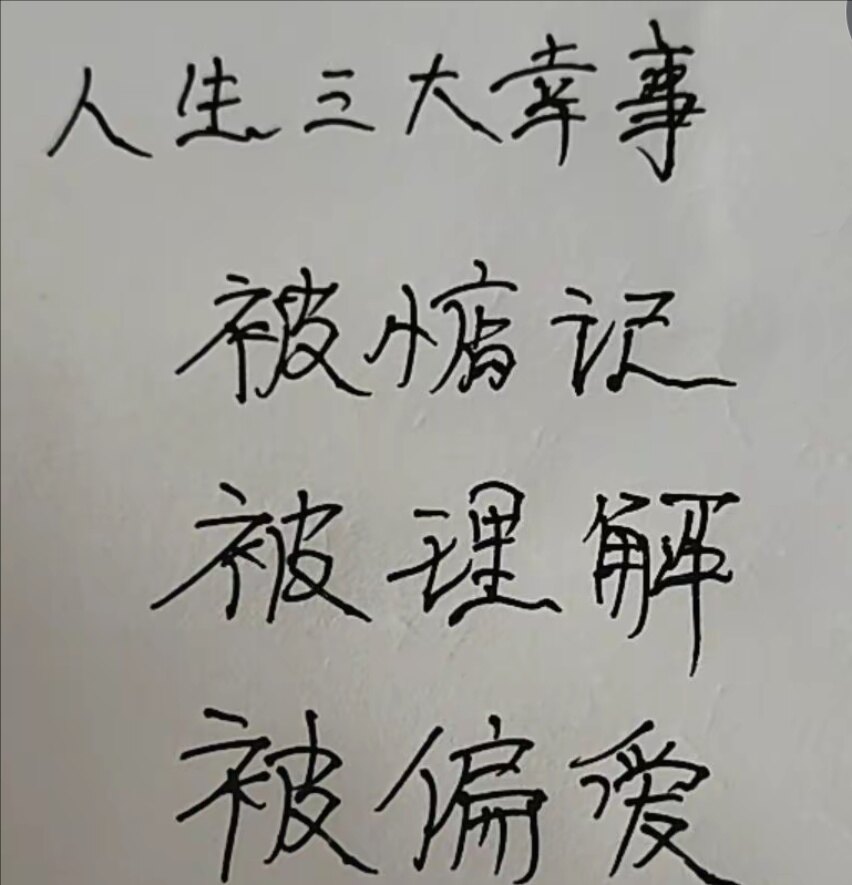 人生三大幸事
被惦记
被理解
被偏爱